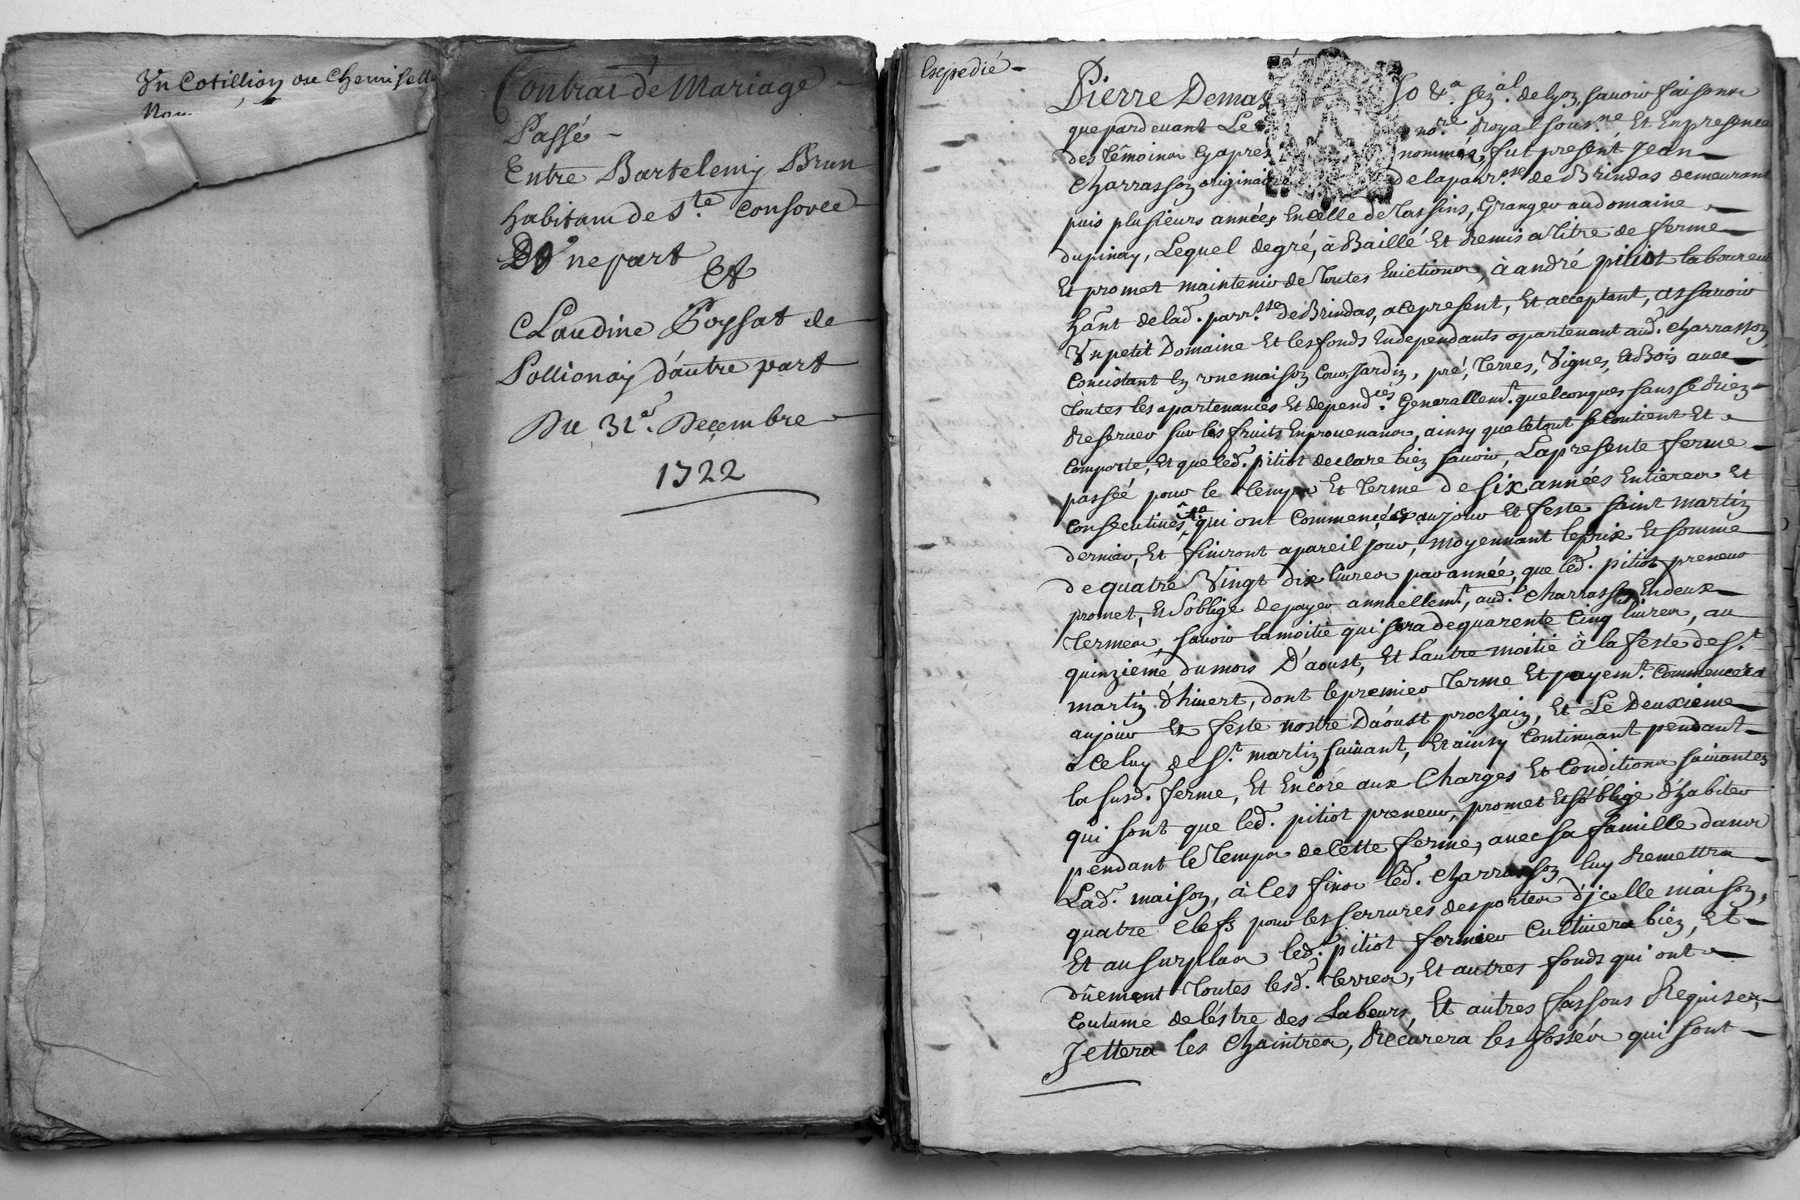 Un Cotillion ou Chemisette
Contrat de Mariage
Passé
Entre Bartelemy Brun
habitant de Ste Consorce
D'Une part
Et
Claudine Poyssat de
Pollionay d'autre part
Du 31e. Decembre
1722
Expedié
Pierre Demas de Lyon, savoir faisons
que pardevant Le nore Royal sousné Et En presence
des têmoins Cyapres nommés, fut present Jean
Charrasson originaire de la parrsse de Brindas demeurant
puis plusieurs années En celle de Tassins, Granger au domaine
dupinay, Lequel de gré, à Baillé Et Remis a titre de ferme
Et promet maintenir de toutes Euictions, à andré pitiot laboureur
hânt de lad. parrsse de Brindas, a ce present, Et acceptant, assauoir
Un petit Domaine Et les fonds En dependants apartenant aud. Charrasson
Concistant En vne maison Cour, Jardin, pré, Terres, Vignes, Et Bois auec
toutes les apartenances Et dependces. Generallemt. quelconques sans se Rien
Reseruer sur les fruits En prouenans, ainsy que le tout se Contient Et
Comporte, Et que led. pitiot declare bien sauoir, La presente ferme
passée pour le temps Et terme de six années Entieres Et
Consecutiues, qui ont Commencées au jour Et feste saint martin
dernier, Et finiront a pareil jour, moyennant le prix Et somme
de quatre Vingt dix liures par année, que led. pitiot preneur
promet, Et s'oblige de payer annuellemt., aud. Charrasson, En deux
termes, sauoir la moitié qui sera de quarente Cinq liures, au
quinzieme du mois D'aoust, Et l'autre moitié à la feste de St.
martin d'hiuert, dont le premier terme Et payemt. Commencera
au jour Et feste nostre D'aoust prochain, Et Le Deuxieme
à Celuy de St. martin suiuant, Et ainsy Continuant pendant
la susd. ferme, Et Encore aux Charges Et Conditions suiuantes
qui sont que led. pitiot preneur, promet Et s'oblige d'habiter
pendant le temps de Cette ferme, auec sa famille dans
Lad. maison, à Ces fins led. Charrasson luy Remettra
quatre Clefs pour les serrures des portes d'jcelle maison,
Et au surplus led. pitiot fermier Cultiuera bien, Et
düement toutes lesd. terres, Et autres fonds qui ont
Coutume de l'éstre des Labeurs, Et autres fassons Requises,
Jettera les Chaintres, Récurera les fossés qui sont